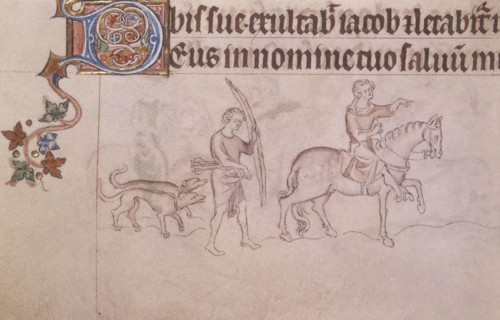 bis sue. exultab̄ iacob ⁊ letabit᷑
Deus in nomine tuo saluū m